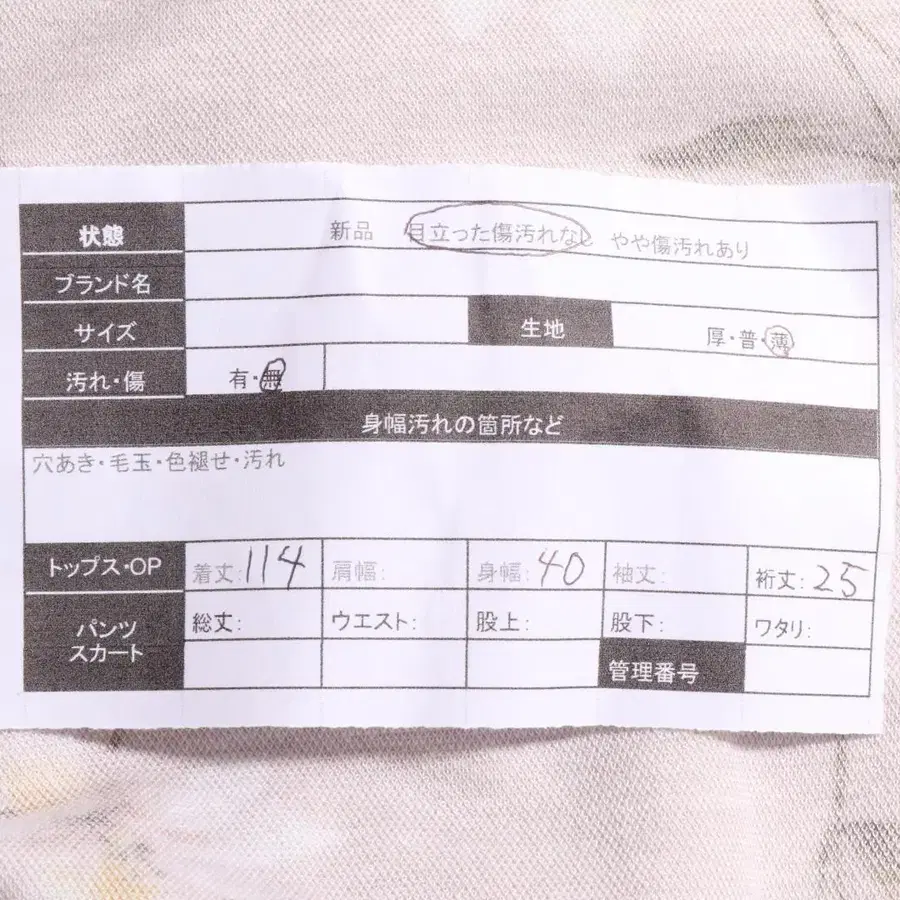 状態 新品 目立った傷汚れなし やや傷汚れあり
ブランド名
サイズ 生地 厚・普・薄
汚れ・傷 有・無
身幅汚れの箇所など
穴あき・毛玉・色褪せ・汚れ
トップス・OP 着丈:114 肩幅: 身幅:40 袖丈: 裄丈:25
パンツ 総丈: ウエスト: 股上: 股下: ワタリ:
スカート 管理番号